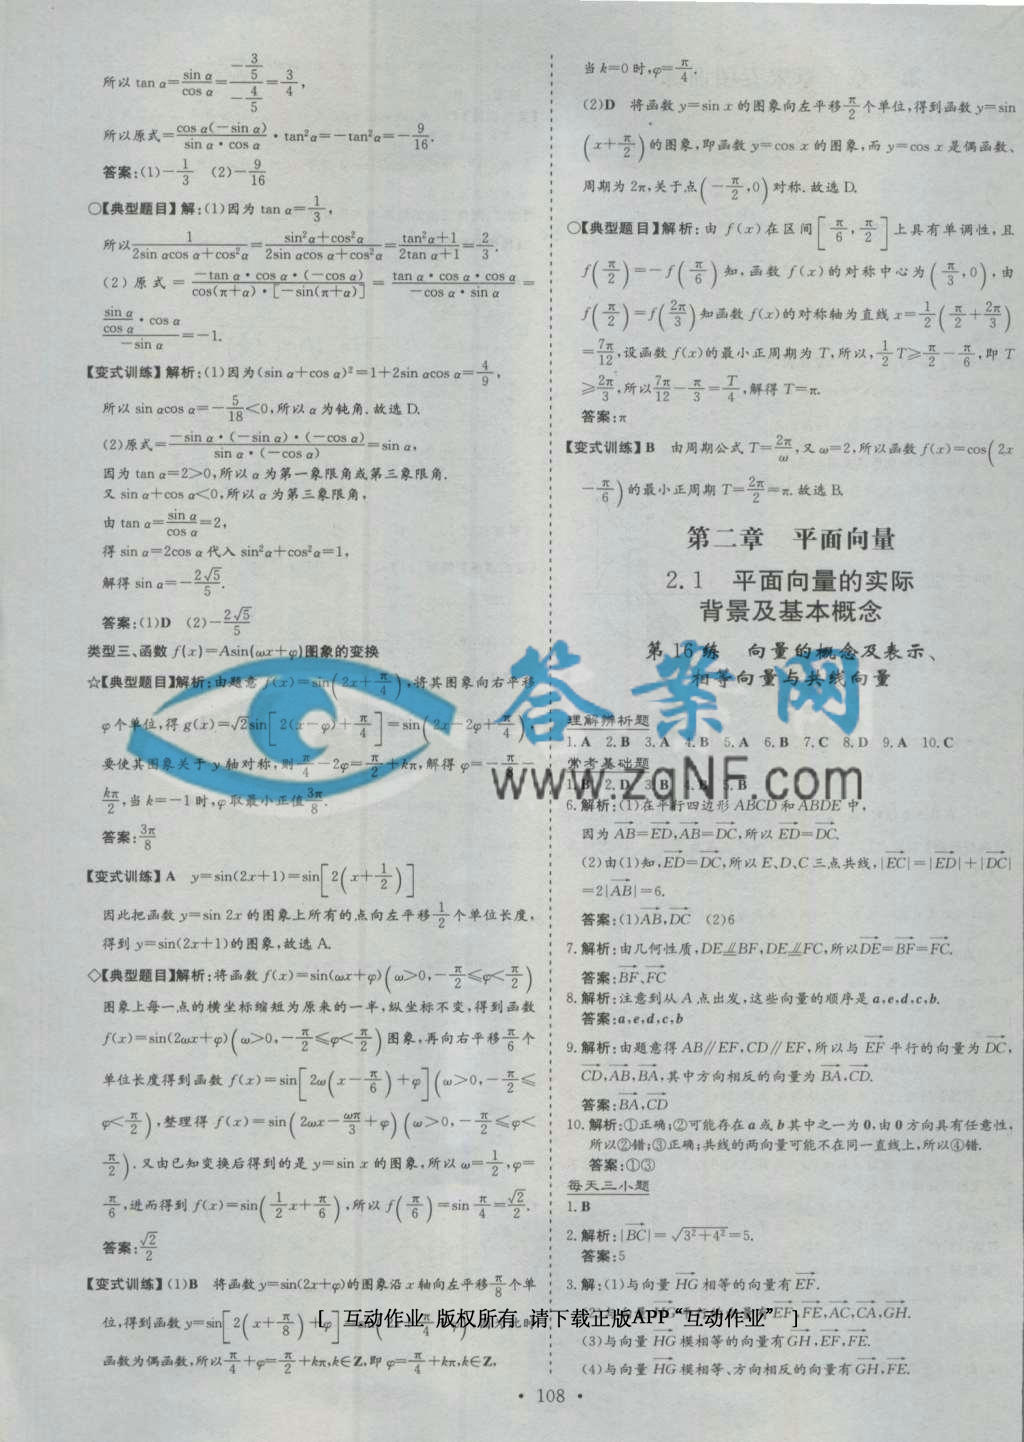 所以 tan α=sin α/cos α=(-3/5)/(-4/5)=3/4,
所以原式=cos α(-sin α)/(sin α·cos α)·tan²α=-tan²α=-9/16.
答案:(1)-1/3 (2)-9/16
○【典型题目】解:(1)因为 tan α=1/3,
所以1/(2sin αcos α+cos²α)=(sin²α+cos²α)/(2sin αcos α+cos²α)=(tan²α+1)/(2tan α+1)=2/3.
(2)原式=-tan α·cos α·(-cos α)/(cos(π+α)·[-sin(π+α)])=tan α·cos α·cos α/(-cos α·sin α)=
(sin α/cos α·cos α)/(-sin α)=-1.
【变式训练】解析:(1)因为(sin α+cos α)²=1+2sin αcos α=4/9,
所以 sin αcos α=-5/18<0,所以 α 为钝角.故选 D.
(2)原式=-sin α·(-sin α)·(-cos α)/(sin α·(-cos α))=sin α,
因为 tan α=2>0,所以 α 为第一象限角或第三象限角.
又 sin α+cos α<0,所以 α 为第三象限角,
由 tan α=sin α/cos α=2,
得 sin α=2cos α 代入 sin²α+cos²α=1,
解得 sin α=-2√5/5.
答案:(1)D (2)-2√5/5
类型三、函数 f(x)=Asin(ωx+φ)图象的变换
☆【典型题目】解析:由题意 f(x)=sin(2x+π/4),将其图象向右平移
φ个单位,得 g(x)=√2sin[2(x-φ)+π/4]=sin(2x-2φ+π/4),
要使其图象关于 y 轴对称,则π/4-2φ=π/2+kπ,解得 φ=-π/8-
kπ/2,当 k=-1 时,φ取最小正值3π/8.
答案:3π/8
【变式训练】A y=sin(2x+1)=sin[2(x+1/2)]
因此把函数 y=sin 2x 的图象上所有的点向左平移1/2个单位长度,
得到 y=sin(2x+1)的图象,故选 A.
◇【典型题目】解析:将函数 f(x)=sin(ωx+φ)(ω>0,-π/2≤φ<π/2)
图象上每一点的横坐标缩短为原来的一半,纵坐标不变,得到函数
f(x)=sin(2ωx+φ)(ω>0,-π/2≤φ<π/2)图象,再向右平移π/6个
单位长度得到函数 f(x)=sin[2ω(x-π/6)+φ](ω>0,-π/2≤
φ<π/2),整理得 f(x)=sin(2ωx-ωπ/3+φ)(ω>0,-π/2≤φ<
π/2).又由已知变换后得到的是 y=sin x 的图象,所以 ω=1/2,φ=
π/6,进而得到 f(x)=sin(1/2x+π/6),所以 f(π/6)=sin π/4=√2/2.
答案:√2/2
【变式训练】(1)B 将函数 y=sin(2x+φ)的图象沿 x 轴向左平移π/8个单
位,得到函数 y=sin[2(x+π/8)+φ]
函数为偶函数,所以π/4+φ=π/2+kπ,k∈Z,即 φ=π/4+kπ,k∈Z,
当 k=0 时,φ=π/4.
(2)D 将函数 y=sin x 的图象向左平移π/2个单位,得到函数 y=sin
(x+π/2)的图象,即函数 y=cos x 的图象,而 y=cos x 是偶函数、
周期为 2π,关于点(-π/2,0)对称.故选 D.
○【典型题目】解析:由 f(x)在区间[π/6,π/2]上具有单调性,且
f(π/2)=-f(π/6)知,函数 f(x)的对称中心为(π/3,0),由
f(π/2)=f(2π/3)知函数 f(x)的对称轴为直线 x=1/2(π/2+2π/3)
=7π/12,设函数 f(x)的最小正周期为 T,所以,1/2T≥π/2-π/6,即 T
≥2π/3,所以7π/12-π/3=T/4,解得 T=π.
答案:π
【变式训练】B 由周期公式 T=2π/ω,又 ω=2,所以函数 f(x)=cos(2x
-π/6)的最小正周期 T=2π/2=π.故选 B.
第二章 平面向量
2.1 平面向量的实际
背景及基本概念
第 16 练 向量的概念及表示、
相等向量与共线向量
理解辨析题
1. A 2. B 3. A 4. B 5. A 6. B 7. C 8. D 9. A 10. C
常考基础题
6. 解析:(1)在平行四边形 ABCD 和 ABDE 中,
因为 AB=ED,AB=DC,所以 ED=DC.
(2)由(1)知,ED=DC,所以 E、D、C 三点共线,|EC|=|ED|+|DC|
=2|AB|=6.
答案:(1)AB,DC (2)6
7. 解析:由几何性质,DE⊥∥BF,DE⊥∥FC,所以DE=BF=FC.
答案:BF、FC
8. 解析:注意到从 A 点出发,这些向量的顺序是 a,e,d,c,b.
答案:a,e,d,c,b
9. 解析:由题意得 AB∥EF,CD∥EF,所以与 EF 平行的向量为 DC,
CD,AB,BA,其中方向相反的向量为 BA,CD.
答案:BA,CD
10. 解析:①正确;②可能存在 a 或 b 其中之一为 0,由 0 方向具有任意性,
所以②错;③正确;共线的两向量可能不在同一直线上,所以④错.
答案:①③
每天三小题
1. B
2. 解析:|BC|=√3²+4²=5.
答案:5
3. 解:(1)与向量 HG 相等的向量有 EF.
EF,FE,AC,CA,GH.
(3)与向量 HG 模相等的向量有 GH,EF,FE.
(4)与向量 HG 模相等、方向相反的向量有 GH,FE.
[ 互动作业 版权所有 请下载正版APP“互动作业” ]
· 108 ·
答案网
www.zqNF.com